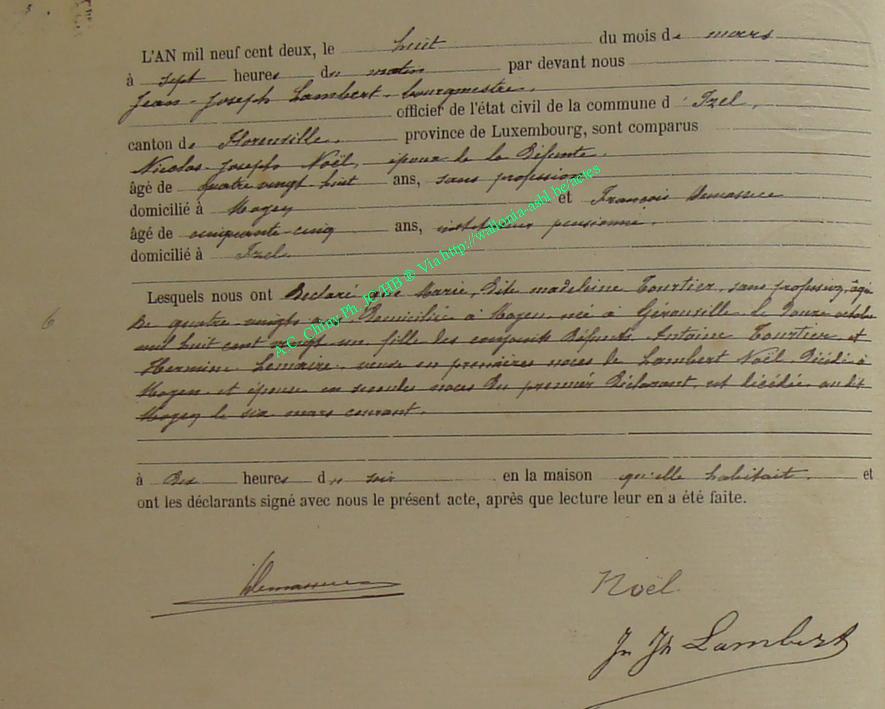 L'AN mil neuf cent deux, le huit du mois de mars
à sept heures du matin par devant nous
Jean-Joseph Lambert bourgmestre,
officier de l'état civil de la commune d'Izel,
canton de Florenville, province de Luxembourg, sont comparus
Nicolas-Joseph Noël, époux de la Défunte,
âgé de quatre vingt huit ans, sans profession
domicilié à Moyen et François Demasure
âgé de cinquante-cinq ans, instituteur pensionné,
domicilié à Izel
Lesquels nous ont Déclaré que Marie, Dite madeleine Tourtier, sans profession, âgée
De quatre-vingts Domiciliée à Moyen, née à Gérouville le Douze octobre
mil huit cent vingt un fille des conjoints Défunts Antoine Tourtier et
Hermine Lemaire, veuve en premières noces de Lambert Noël Décédé à
Moyen et épouse en secondes noces Du premier Déclarant, est décédée audit
Moyen le six mars courant.
6
à Dix heures du soir en la maison qu'elle habitait, et
ont les déclarants signé avec nous le présent acte, après que lecture leur en a été faite.
A.C. Chiny Ph. JC/HB ® Via http://wallonia-asbl.be/actes
Noël
Jn Jh Lambert